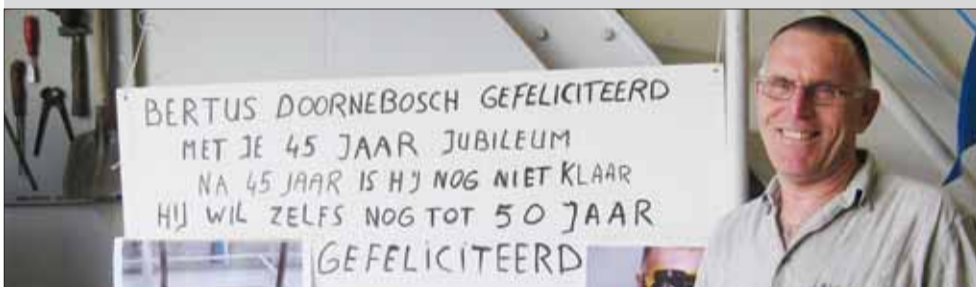 BERTUS DOORNEBOSCH GEFELICITEERD
MET JE 45 JAAR JUBILEUM
NA 45 JAAR IS HIJ NOG NIET KLAAR
HIJ WIL ZELFS NOG TOT 50 JAAR
GEFELICITEERD